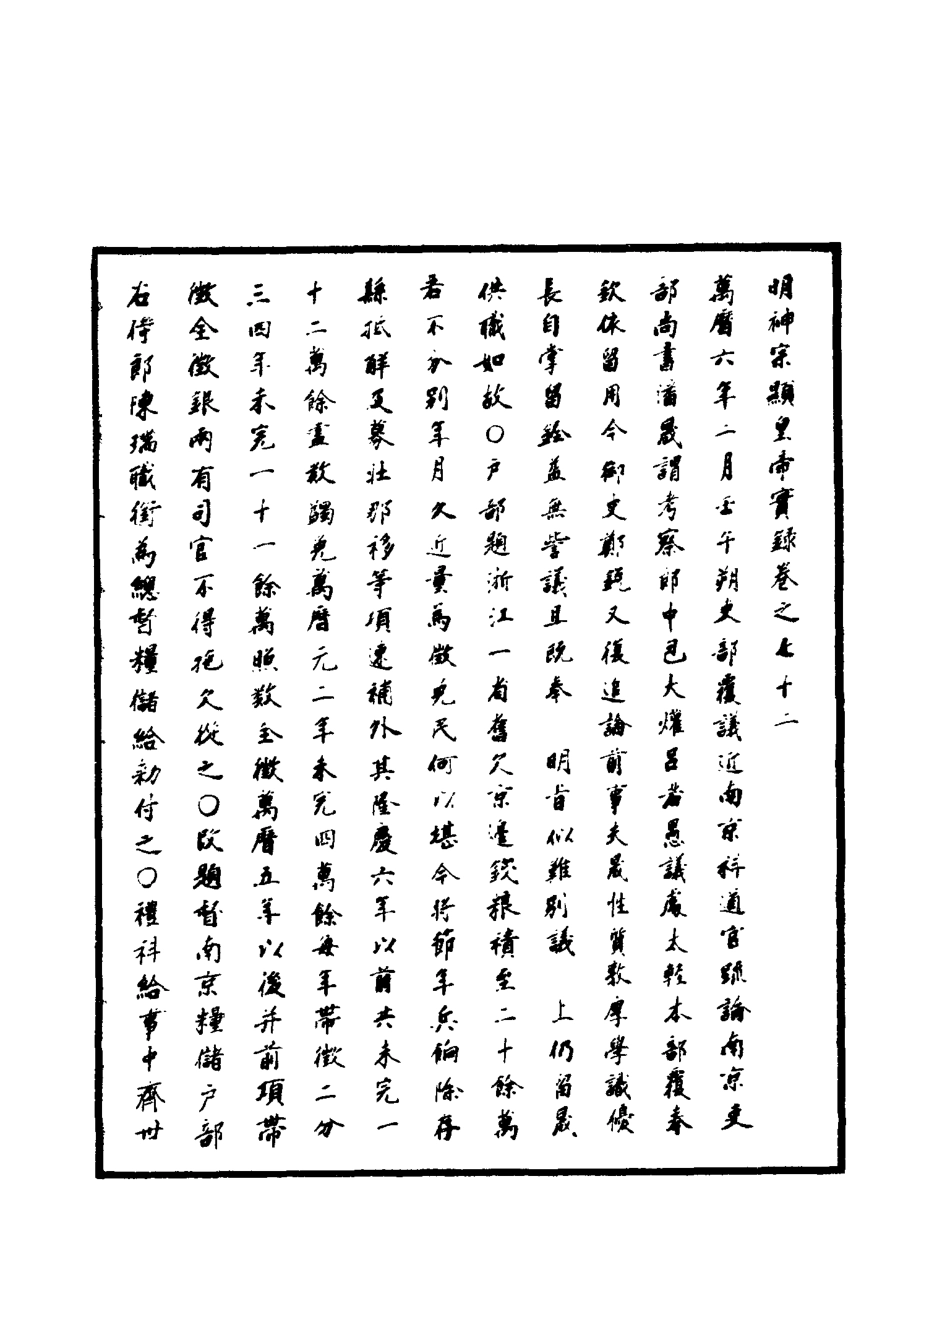 明神宗顯皇帝實錄卷之七十二
萬曆六年二月壬午朔吏部覆議近南京科道官疏論南京吏
部尚書潘晟謂考察郎中包大爟呂若愚議處太輕本部覆奉
欽依留用今御史鄭銳又復追論前事夫晟性質敦厚學識優
長自掌留銓並無訾議且既奉 明旨似難別議 上仍留晟
供職如故○戶部題浙江一省舊欠京邊錢糧積至二十餘萬
若不分別年月久近量為徵免民何以堪今將節年兵餉除存
縣抵解及募壯那移等項速補外其隆慶六年以前共未完一
十二萬餘盡數蠲免萬曆元二年未完四萬餘每年帶徵二分
三四年未完一十一餘萬照數全徵萬曆五年以後并前項帶
徵全徵銀兩有司官不得拖欠從之○改題督南京糧儲戶部
右侍郎陳瑞職銜為總督糧儲給勑付之○禮科給事中齊世